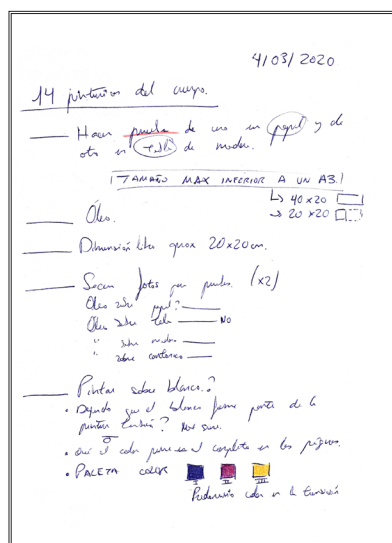 4/03/2020
14 pinturas del cuerpo.
Hacer prueba de uno en papel y de
otro en tabla de madera.
¡TAMAÑO MAX INFERIOR A UN A3!
↳ 40x20
→ 20x20
Óleo.
Dimensión libro aprox 20x20cm.
Sacar fotos por pruebas. (x2)
Óleo sobre papel?
Óleo sobre tela NO
" sobre madera
" sobre
Pintar sobre blanco.?
• Dejando que el blanco forme parte de la
pintura también?
• Que el color pase al completo en las páginas.
• PALETA COLOR
I II III
Predominio color en la